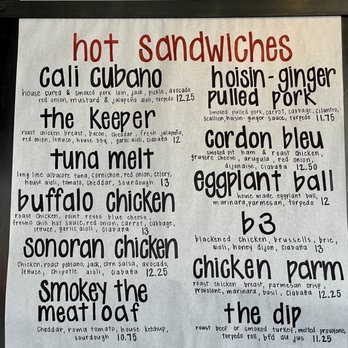 hot sandwiches
cali cubano
house cured & smoked pork loin, jack, pickle, avocado
red onion, mustard & jalapeño aioli, torpedo 12.25
the keeper
roast chicken breast, bacon, cheddar, fresh jalapeño
red onion, lettuce, house bbq, garlic aioli, ciabatta 12
tuna melt
long line albacore tuna, cornichon, red onion, celery,
house aioli, tomato, cheddar, sourdough 13
buffalo chicken
roast chicken, point reyes blue cheese,
fresno chili hot sauce, red onion, carrot, cabbage,
lettuce, garlic aioli, ciabatta 13
sonoran chicken
chicken, roast poblano, jack, corn salsa, avocado,
lettuce, chipotle aioli, ciabatta 12.25
smokey the
meatloaf
cheddar, roma tomato, house ketchup,
sourdough 10.75
hoisin-ginger
pulled pork
smoked pulled pork, carrot, cabbage, cilantro,
scallion, hoisin-ginger sauce, torpedo 11.75
cordon bleu
smoked pit ham & roast chicken,
gruyere cheese, arugula, red onion,
dijonnaise, ciabatta 12.50
eggplant ball
house made eggplant ball,
marinara, parmesan, torpedo 12
b3
blackened chicken, brussells, brie,
aioli, honey dijon, ciabatta 13
chicken parm
roast chicken breast, parmesan crisp,
provolone, marinara, basil, ciabatta 12.25
the dip
roast beef or smoked turkey, melted provolone,
torpedo roll, bfd au jus 11.25